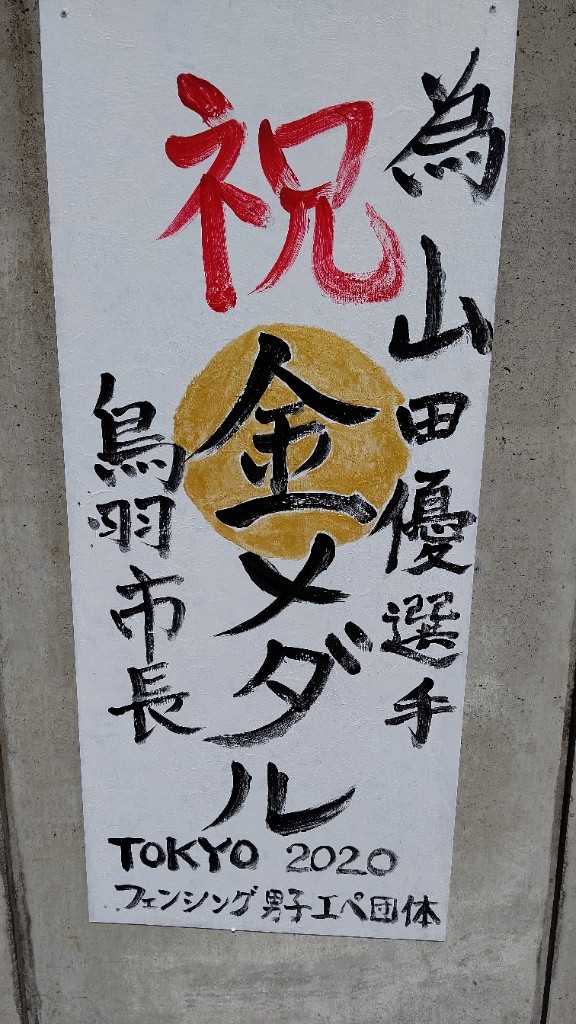 為山田優選手
祝
金メダル
鳥羽市長
TOKYO 2020
フェンシング男子エペ団体